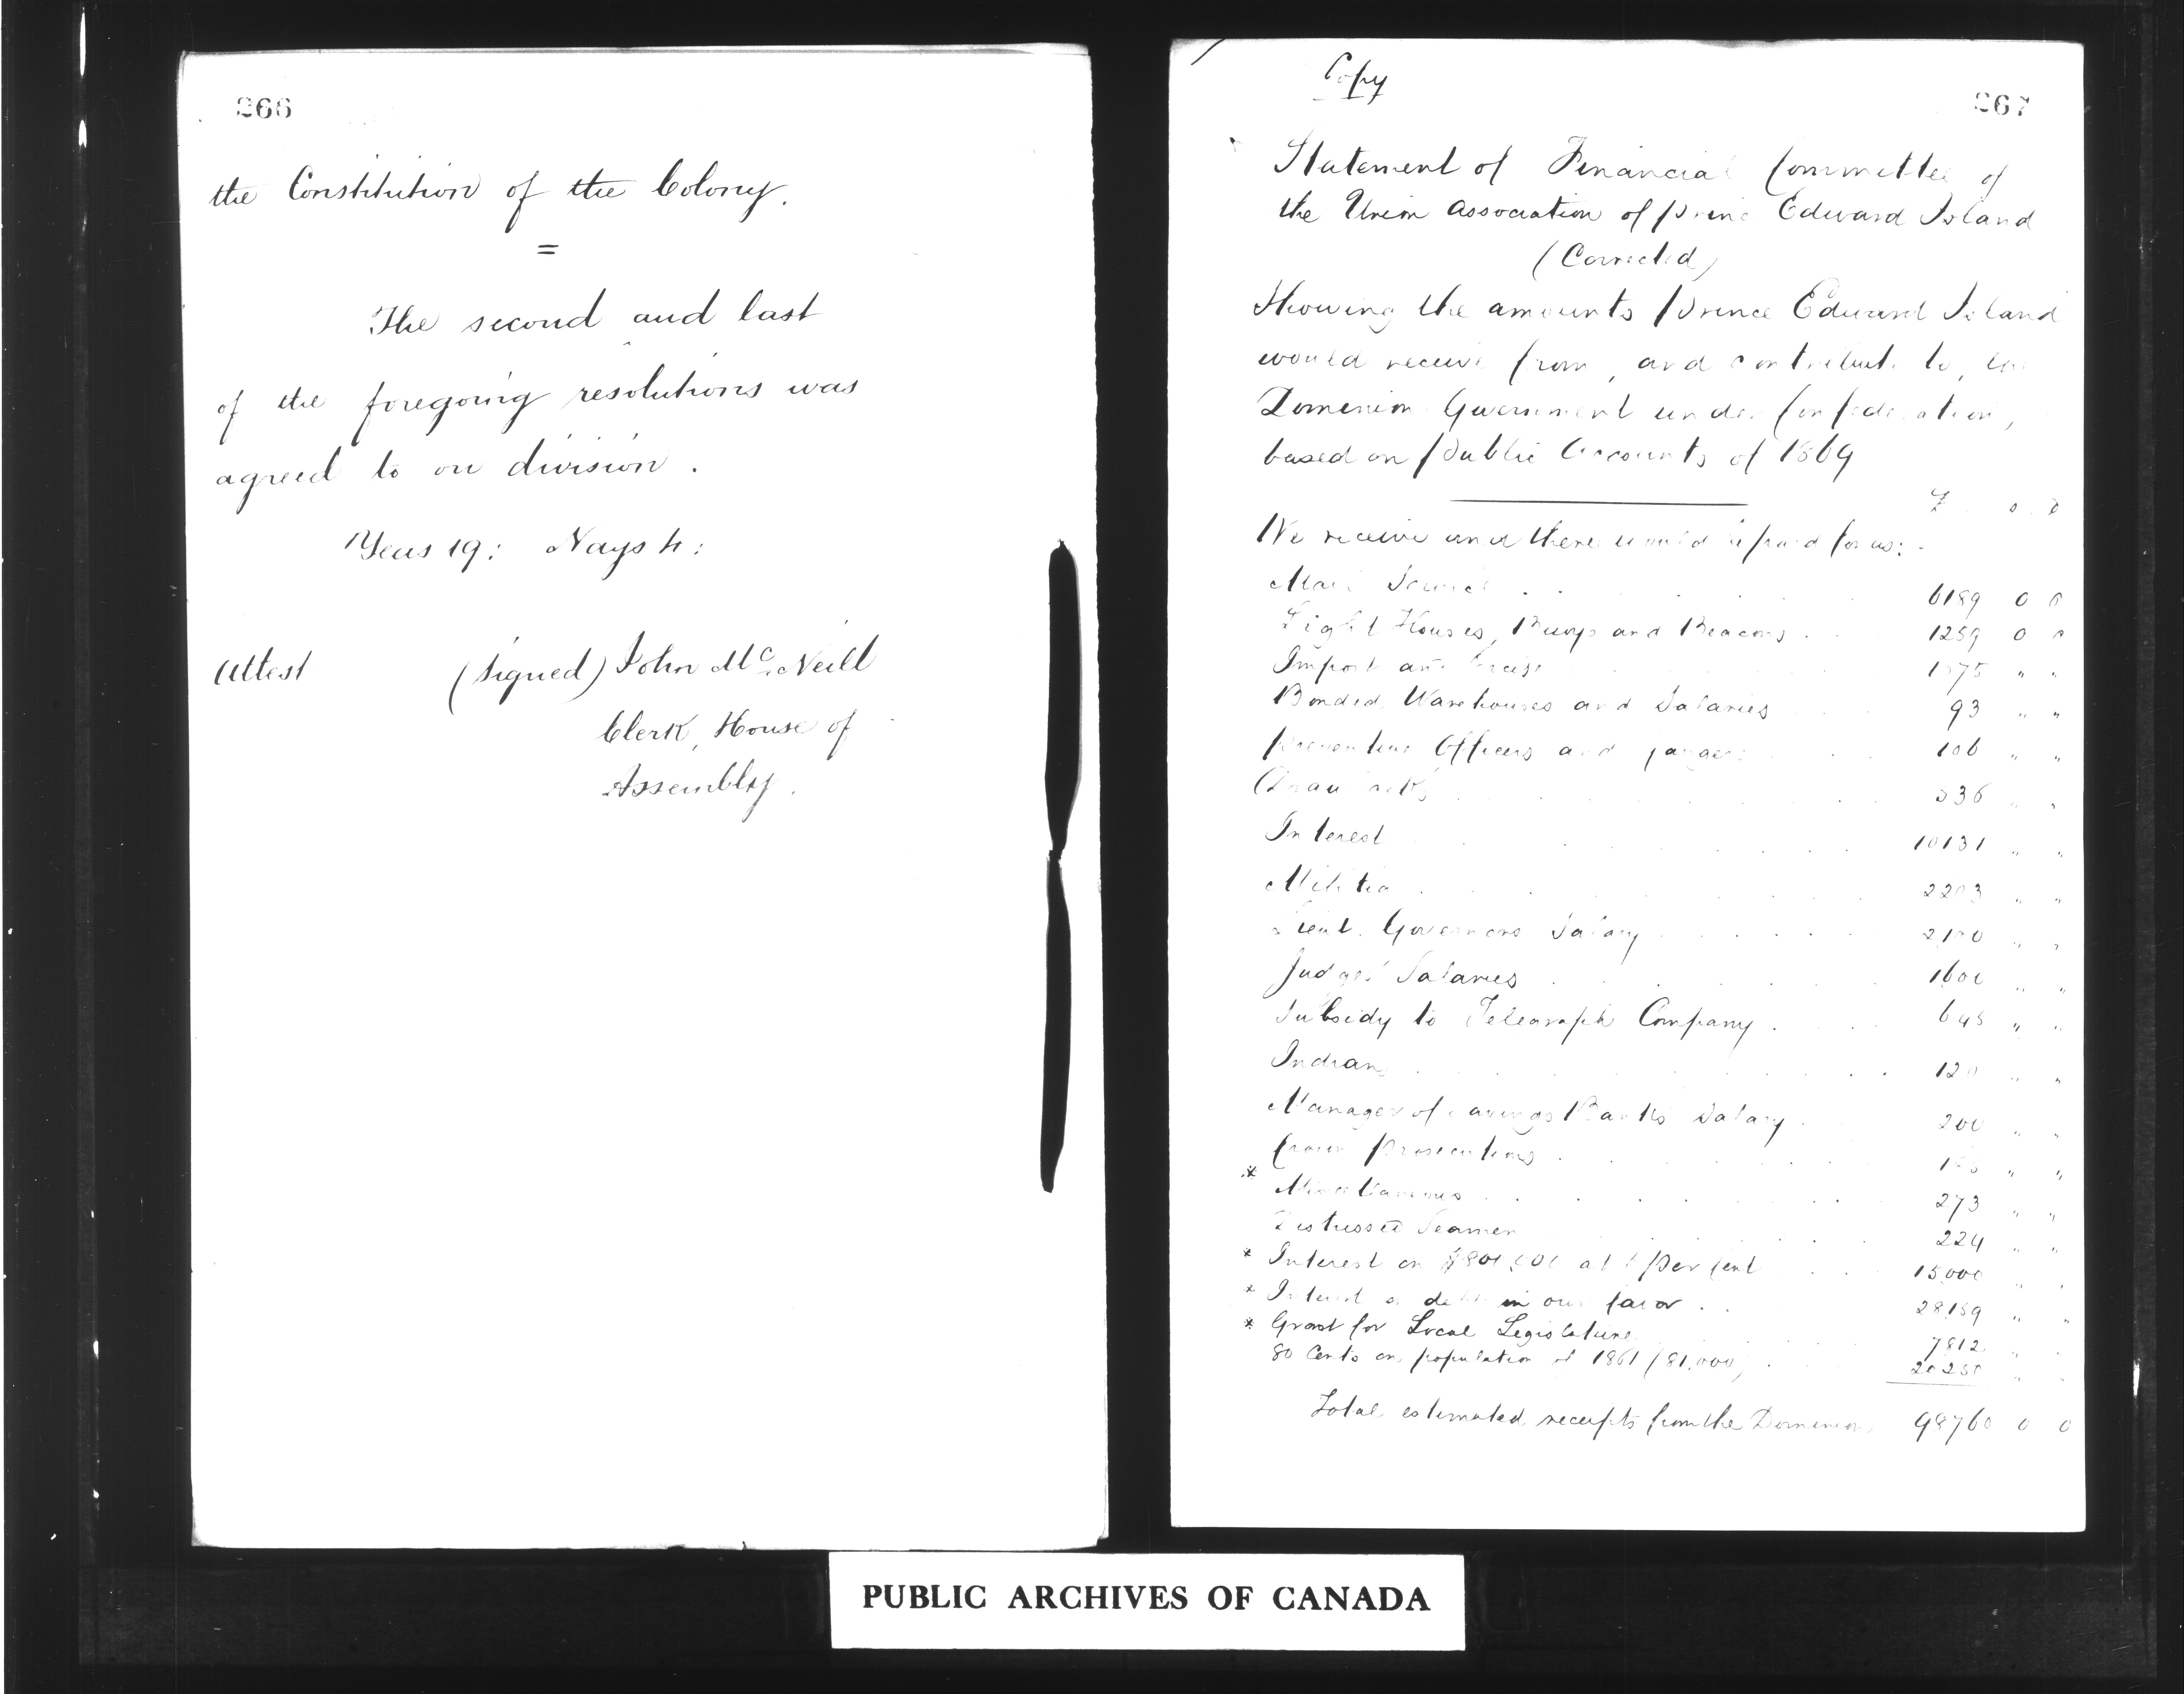 266
the Constitution of the Colony.
=
The second and last
of the foregoing resolutions was
agreed to on division.
Yeas 19: Nays 4:
Attest (signed) John McNeill
Clerk, House of
Assembly.
Copy
267
Statement of Financial Committee of
the Union Association of Prince Edward Island
(Corrected)
Showing the amounts Prince Edward Island
would receive from, and contribute to, the
Dominion Government under Confederation,
based on Public Accounts of 1869
£ s. d
We receive and there would be paid for us:-
Mail Service 6189 0 0
Light Houses, Buoys and Beacons 1259 0 0
Impost and Excise " "
Bonded Warehouses and Salaries 93 " "
Preventive Officers and 106 " "
Drawbacks 336 " "
Interest 10131 " "
Militia 2203 " "
Lieut. Governors Salary 2100 " "
Judges' Salaries 1600 " "
Subsidy to Telegraph Company 645 " "
Indians 120 " "
Manager of Savings Banks Salary 200 " "
Crown Prosecutions " "
* Miscellaneous 273 " "
Distressed Seamen 224 " "
* Interest on at Per Cent 15,000 " "
* Interest on debt in our favor 28189 " "
* Grant for Local Legislature 7812 " "
80 Cents on population of 1861 (81,000) 20250 " "
Total estimated receipts from the Dominion 98760 0 0
PUBLIC ARCHIVES OF CANADA